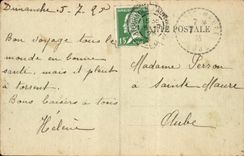 Dimanche 5.7.
CARTE POSTALE
Bon voyage tous le
monde en bonne
santé mais il pleut
à torrent.
Bons baisers à tous
Hélène
15
Madame Perron
à Sainte Maure
Aube